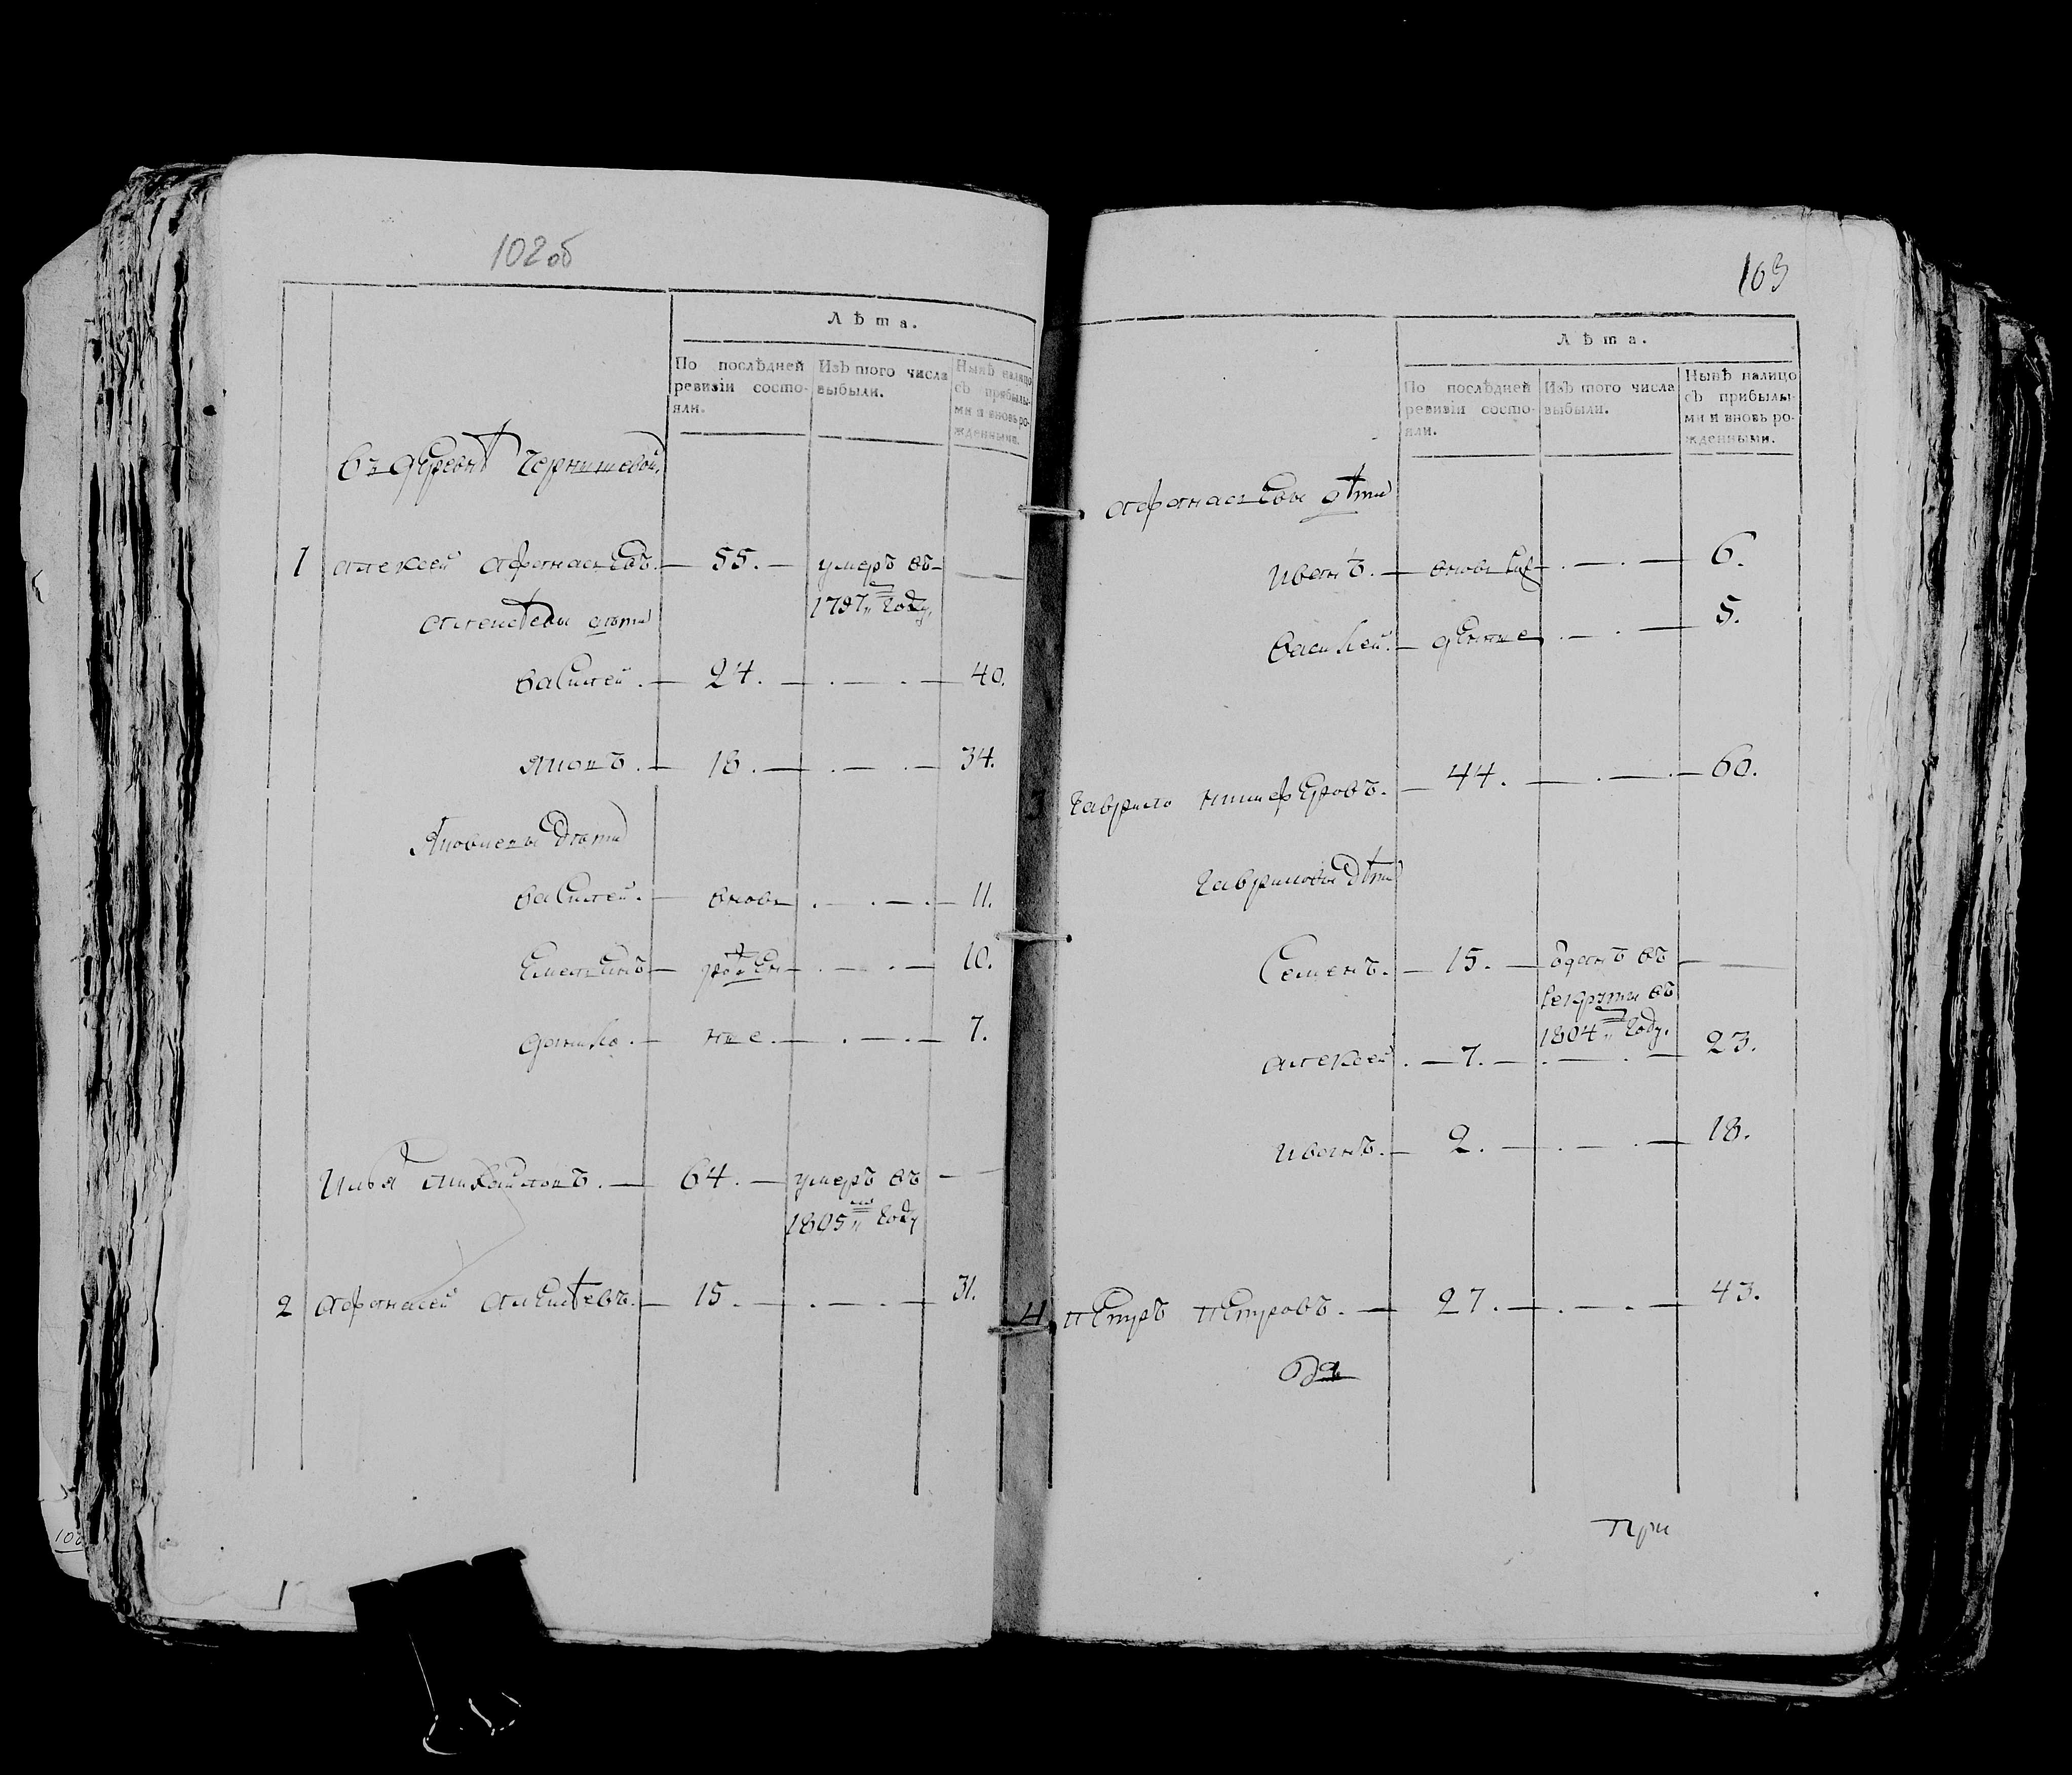 102об
Лѣта.
По послѣдней ревизіи состо-
яли.
Изъ того числа
выбыли.
Нынѣ налицо
съ прибылы-
ми и вновь ро-
жденными.
Въ деревнѣ Чернышевой.
1 Алексей Афанасьевъ. 55. умеръ въ
1797м году.
Алексѣевы дѣти
Василей. 24. 40.
Яковъ. 18. 34.
Яковлевы дѣти
Василей. вновь 11.
Емельянъ рожден 10.
Данило. ные. 7.
Илья Михайловъ. 64. умеръ въ
1805м году
2 Афанасей Алексѣевъ. 15. 31.
103
Лѣта.
По послѣдней
ревизіи состо-
яли.
Изъ того числа
выбыли.
Нынѣ налицо
съ прибылы-
ми и вновь ро-
жденными.
Афанасьевы дѣти
Иванъ. 6.
Василей. 5.
3 Гаврило 44. 60.
Гавриловы дѣти
Семенъ. 15. въ
рекруты въ
1804м году.
Алексей. 7. 23.
Иванъ. 2. 18.
4 Петръ Петровъ. 27. 43.
При
100